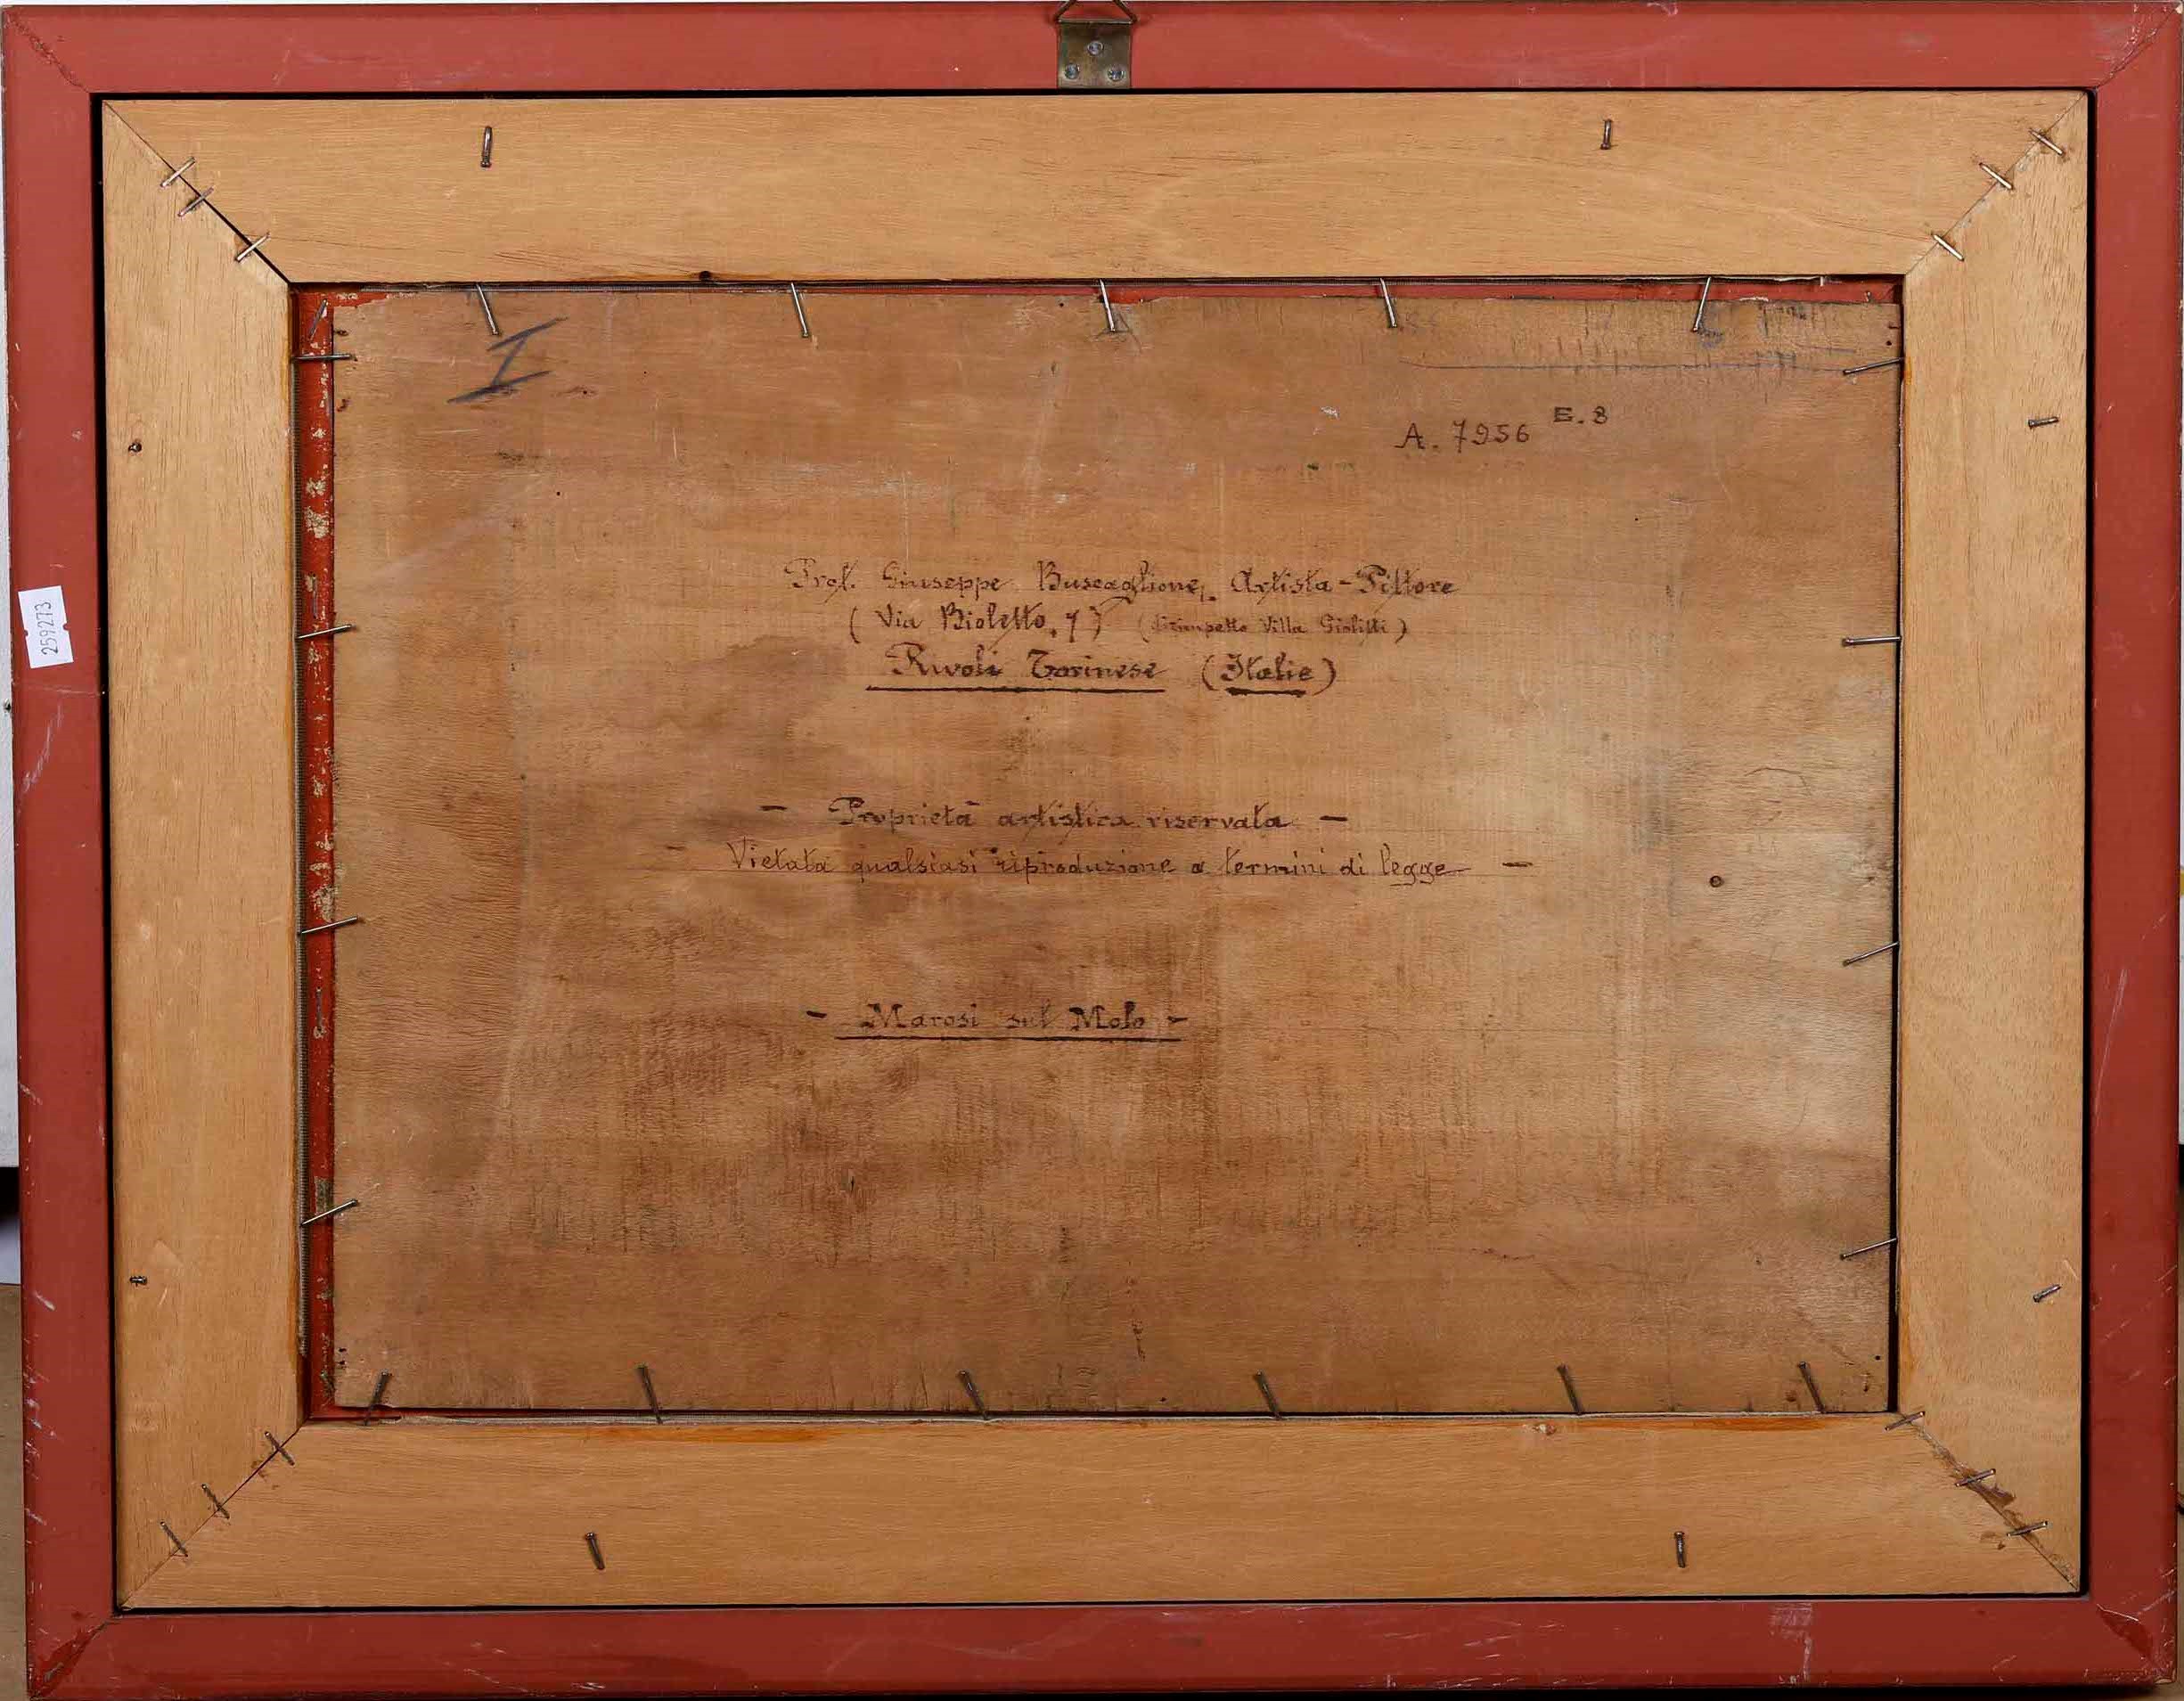 I
E. 8
A. 7956
Prof. Giuseppe Buscaglione, Artista-Pittore
(Via Bioletto, 7) (dirimpetto Villa Giolitti)
Rivoli Torinese (Italie)
- Proprietà artistica riservata -
- Vietata qualsiasi riproduzione a termini di legge -
- Marosi sul Molo -
259273